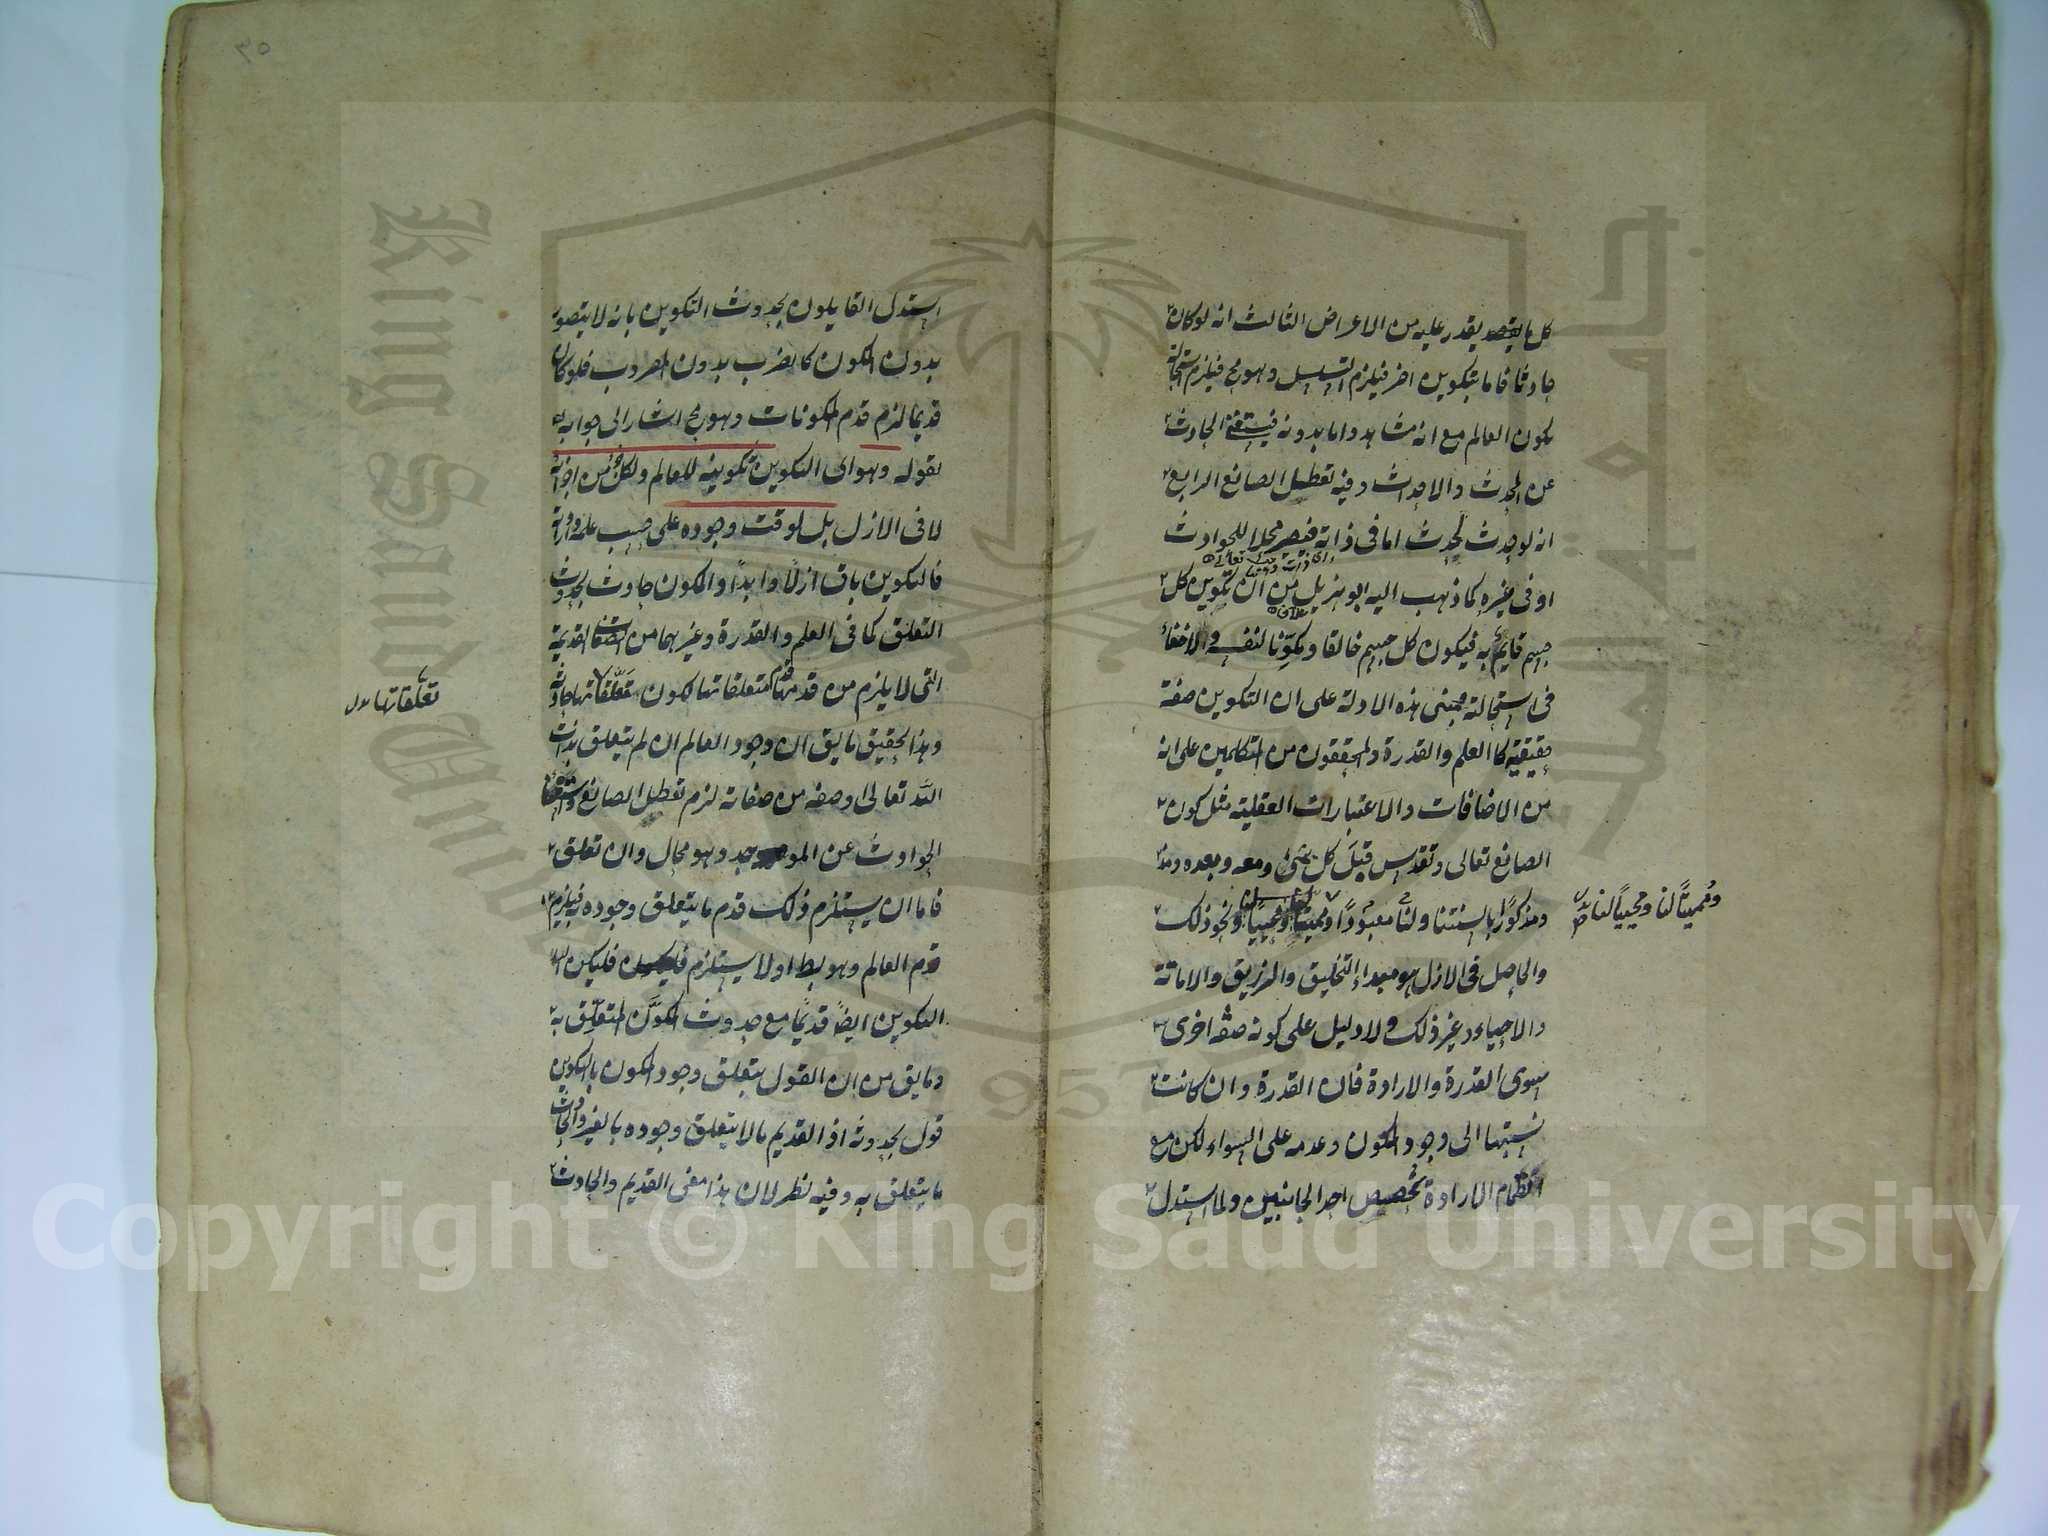 كل ما يقصد يقدر عليه من الاعراض الثالث انه لو كان
حادثا فاما بتكوين اخر فيلزم التسلسل وهو مح فيلزم استحالة
تكون العالم مع انه مشاهد واما بدونه فيستغنى الحادث
عن المحدث والاحداث وفيه تعطيل الصانع الرابع
انه لو حدث لحدث اما فى ذاته فيصير محلا للحوادث
او فى غيره كما ذهب اليه ابو هزيل من ان تكوين كل
جسم قايم به فيكون كل جسم خالقا ومكوِّنا لنفسه ولا خفاء
فى استحالته ومبنى هذه الادلة على ان التكوين صفة
حقيقية كالعلم والقدرة والمحققون من المتكلمين على انه
من الاضافات والاعتبارات العقلية مثل كون
الصانع تعالى وتقدس قبلَ كل شئ ومعه وبعده
ومذكورًا بالسنتنا ولنا معبودًا ومميتا ومحييا ونحو ذلك
ومُميتًا لنا ومحييًا لنا
والحاصل فى الازل هو مبداء التخليق والترزيق والاماتة
والاحياء وغير ذلك ولا دليل على كونه صفة اخرى
سوى القدرة والارادة فان القدرة وان كانت
نسبتها الى وجود المكون وعدمه على السواء لكن مع
انضمام الارادة تخصيص احد الجانبين ولما استدل
٣٥
استدل القايلون بحدوث التكوين بانه لا يتصور
بدون المكون كالضرب بدون المضروب فلو كان
قديما لزم قدم المكونات وهو مح اشار الى جوابه
بقوله وهو اى التكوين تكوينه للعالم ولكل جزء من اجزائه
لا فى الازل بل لوقت وجوده على حسب علمه وارادته
فالتكوين باق ازلاً وابدًا والمكون حادث بحدوث
التعلق كما فى العلم والقدرة وغيرهما من الصفات القديمة
التى لا يلزم من قدمها قدم متعلقاتها لكون متعلقاتها حادثة
تعلقاتها
وهذا تحقيق ما يق ان وجود العالم ان لم يتعلق بذات
الله تعالى او صفة من صفاته لزم تعطيل الصانع واستغناء
الحوادث عن الموجد وهو محال وان تعلق
فاما ان يستلزم ذلك قدم ما يتعلق وجوده به فيلزم
قدم العالم وهو بط او لا يستلزم فليكن
التكوين ايضًا قديمًا مع حدوث المكوَّن المتعلِّق به
وما يق من ان القول بتعلق وجود المكون بالتكوين
قول بحدوثه اذ القديم ما لا يتعلق وجوده بالغير والحادث
ما يتعلق به وفيه نظر لان هذا معنى القديم والحادث
Copyright © King Saud University